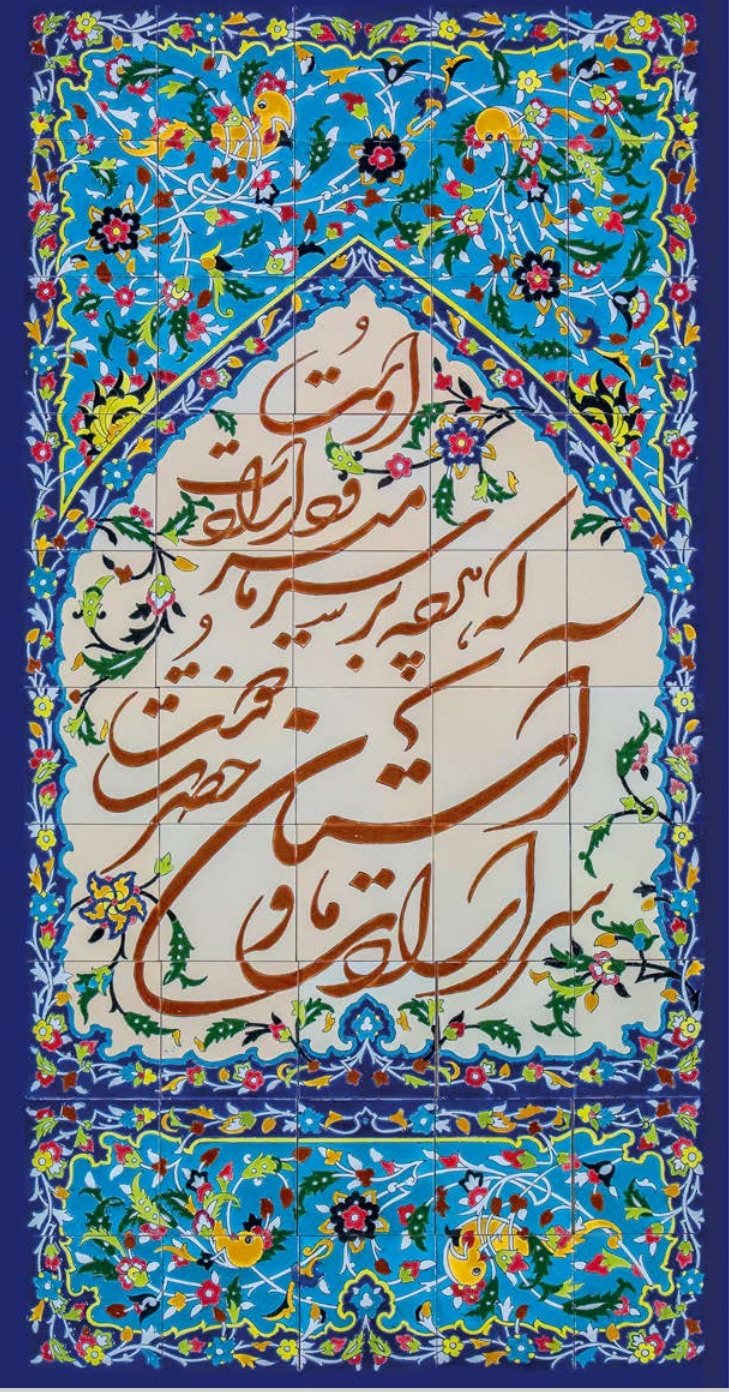 سر ارادت ما و
آستان حضرت دوست
که هر چه بر سر ما
میرود ارادت
اوست